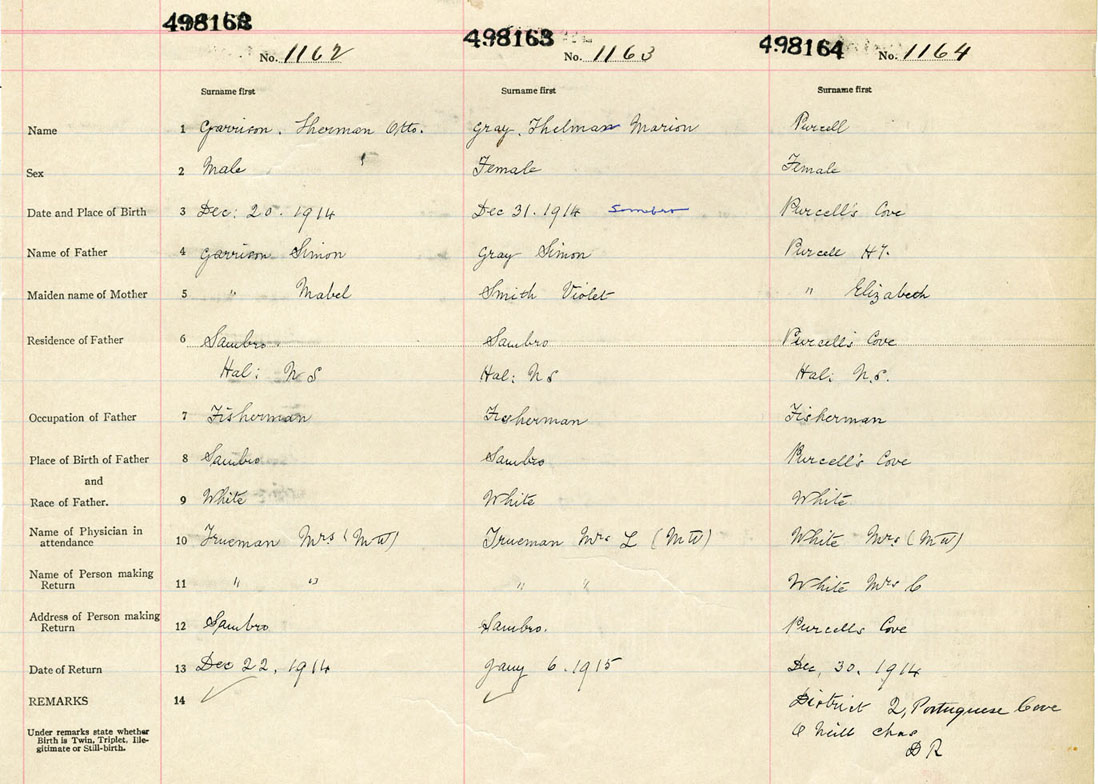 498162 498163 498164
No. 1162 No. 1163 No. 1164
Surname first Surname first Surname first
Name 1 Garrison, Sherman Otto. Gray, Thelman Marion Purcell
Sex 2 Male Female Female
Date and Place of Birth 3 Dec: 20. 1914 Dec 31. 1914 Sambro Purcell's Cove
Name of Father 4 Garrison Simon Gray Simon Purcell HY.
Maiden name of Mother 5 " Mabel Smith Violet " Elizabeth
Residence of Father 6 Sambro. Sambro Purcell's Cove
Hal: N S Hal: N S Hal: N.S.
Occupation of Father 7 Fisherman Fisherman Fisherman
Place of Birth of Father 8 Sambro Sambro Purcell's Cove
and
Race of Father. 9 White White White
Name of Physician in
attendance 10 Trueman Mrs (MW) Trueman Mrs L (MW) White Mrs (MW)
Name of Person making
Return 11 " " " " White Mrs C
Address of Person making
Return 12 Sambro Sambro. Purcells Cove
Date of Return 13 Dec 22, 1914 Jany 6. 1915 Dec, 30. 1914
REMARKS 14 District 2, Portuguese Cove
Under remarks state whether
Birth is Twin, Triplet, Ille-
gitimate or Still-birth.
O Neill Chas
D R